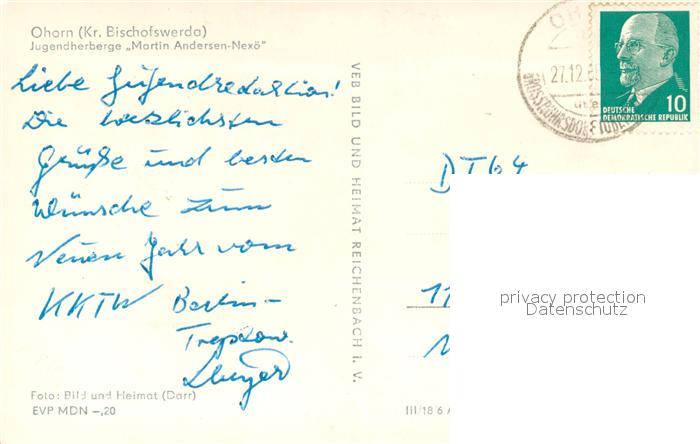 Ohorn (Kr. Bischofswerda)
Jugendherberge „Martin Andersen-Nexö"
Liebe Jugendredaktion!
Die herzlichsten
Grüße und besten
Wünsche zum
Neuen Jahr vom
KKTW Berlin-
Treptow.
Foto: Bild und Heimat (Darr)
EVP MDN –,20
VEB BILD UND HEIMAT REICHENBACH i. V.
III/18 6 A
27.12.6
10
DEUTSCHE
DEMOKRATISCHE REPUBLIK
DT 64
11
privacy protection
Datenschutz